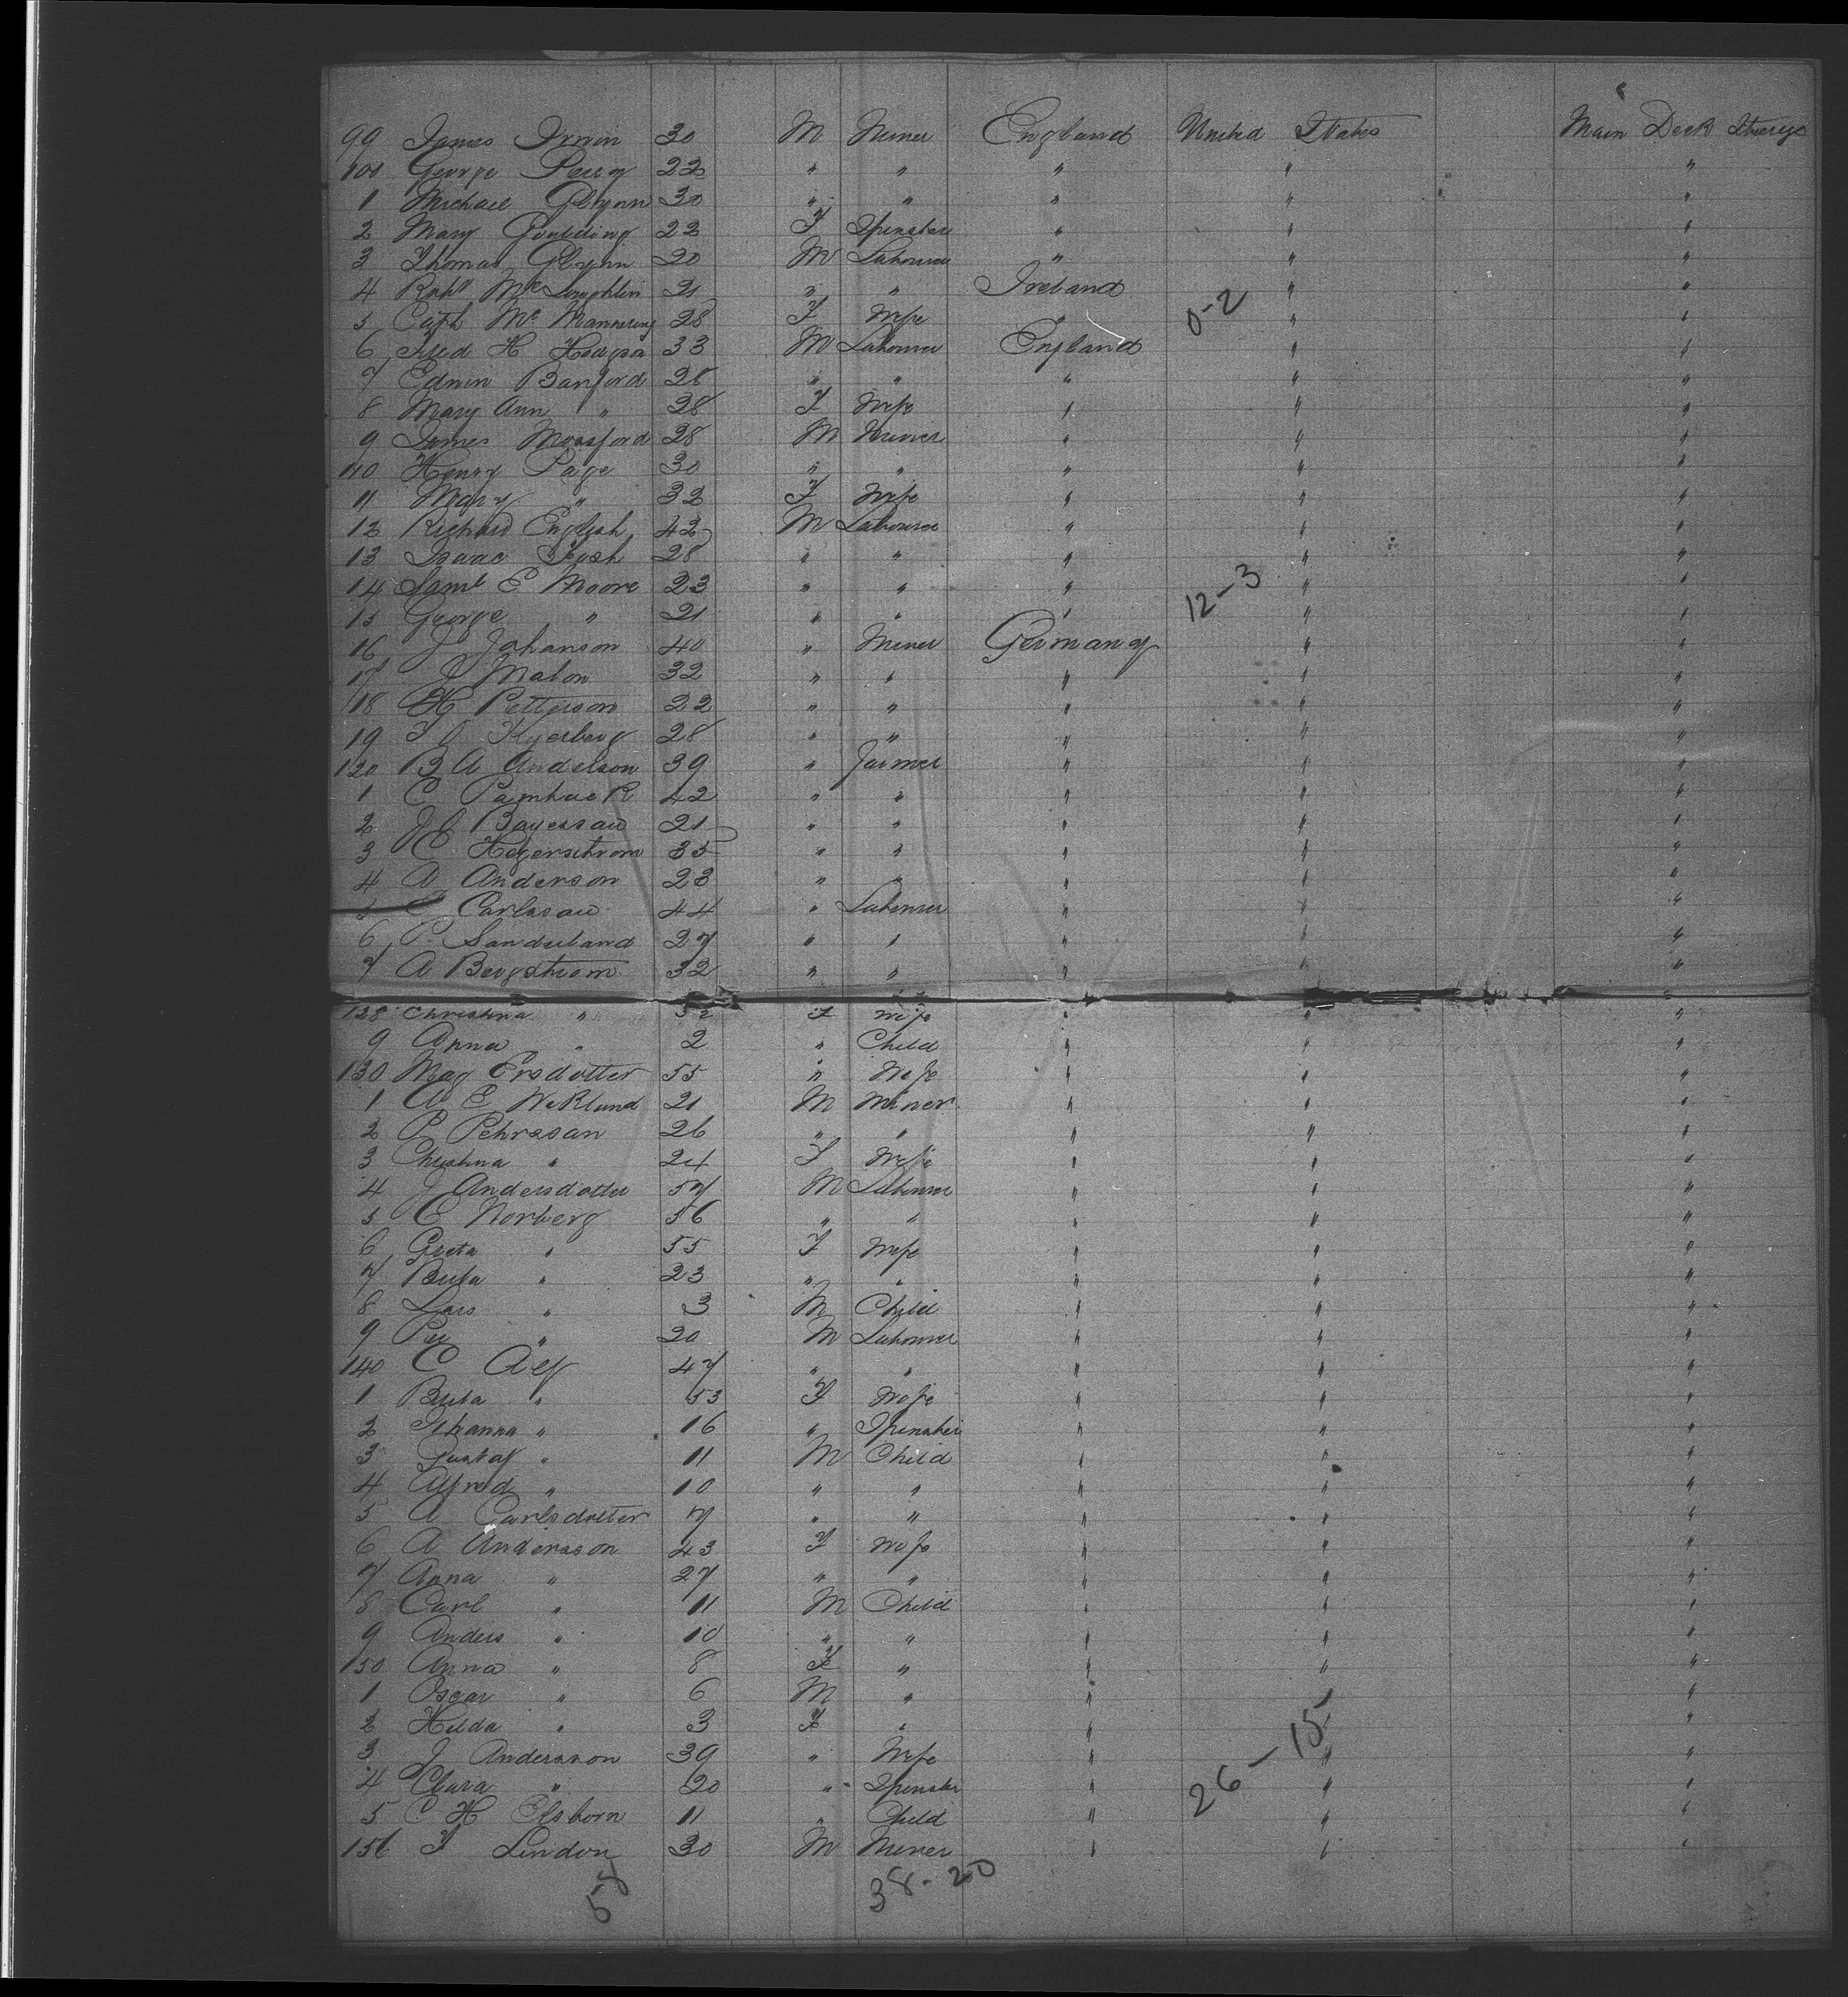 99 James Irwin 30 M Miner England United States Main Deck Steerage
100 George Perry 22 " " " " "
1 Michael Glynn 30 " " " " "
2 Mary Goulding 22 F Spinster " " "
3 Thomas Glynn 20 M Labourer " " "
4 Robt McLoughlin 21 " " Ireland " "
5 Cath Mc Mannering 28 F Wife " 0-2 " "
6 Fred H Hodgson 33 M Labourer England " "
7 Edwin Banford 28 " " " " "
8 Mary Ann " 28 F Wife " " "
9 James Mossford 28 M Miner " " "
110 Henry Page 30 " " " " "
11 Mary " 32 F Wife " " "
12 Richard English 42 M Labourer " " "
13 Isaac 28 " " " " "
14 Saml E Moore 23 " " " 12-3 " "
15 George " 21 " " " " "
16 J Johanson 40 " Miner Germany " "
17 J Malon 32 " " " " "
118 H Petterson 22 " " " " "
19 Kyerberg 28 " " " " "
120 B A Anderson 39 " Farmer " " "
1 C 42 " " " " "
2 J 21 " " " " "
3 C Hegerschrom 35 " " " " "
4 A Anderson 23 " " " " "
5 C Carlssau 44 " Labourer " " "
6 P. Sanderland 27 " " " " "
7 A Bergstrom 32 " " " " "
128 Christina " 32 F Wife " " "
9 Anna " 2 " Child " " "
130 Mag Ersdotter 55 " Wife " " "
1 A E Wiklund 21 M Miner " " "
2 P Pehrssan 26 " " " " "
3 Christina " 24 F Wife " " "
4 J Andersdotter 57 M Labourer " " "
5 E Norberg 56 " " " " "
6 Greta " 55 F Wife " " "
7 Brita " 23 " " " " "
8 Lars " 3 M Child " " "
9 Per " 20 M Labourer " " "
140 C Alf 47 " " " " "
1 Brita " 53 F Wife " " "
2 Johanna " 16 " Spinster " " "
3 Gustaf " 11 M Child " " "
4 Alfred " 10 " " " " "
5 A Carlsdotter 7 " " " " "
6 A Andersson 43 F Wife " " "
7 Anna " 27 " " " " "
8 Carl " 11 M Child " " "
9 Anders " 10 " " " " "
150 Anna " 8 F " " " "
1 Oscar " 6 M " " " "
2 Hilda " 3 F " " " "
3 J Andersson 39 " Wife " 26-15 " "
4 Clara " 20 " Spinster " " "
5 C H Elsborn 11 " Child " " "
156 F Lindon 30 M Miner " " "
58 38-20